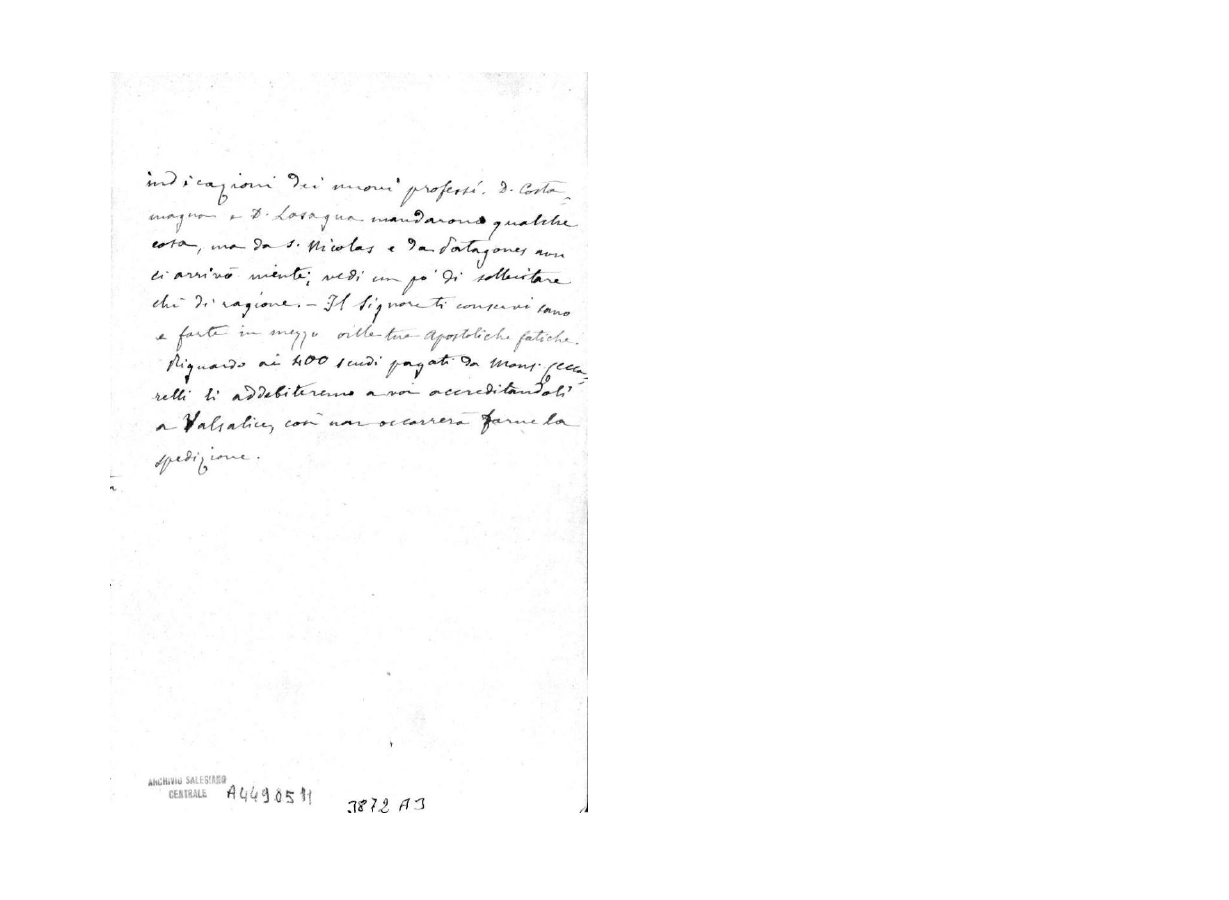 indicazioni dei nuovi professi. D. Costa-
magna e D. Lasagna mandarono qualche
cosa, ma da S. Nicolas e da Patagones non
ci arrivò niente; vedi un po' di sollecitare
chi di ragione. - Il Signore ti conservi sano
e forte in mezzo alle tue Apostoliche fatiche.
Riguardo ai 400 scudi pagati da Mons. Cecca-
relli li addebiteremo a voi accreditandoli
a Valsalice, così non occorrerà farne la
spedizione.
ARCHIVIO SALESIANO
CENTRALE A4490511
3872 A3